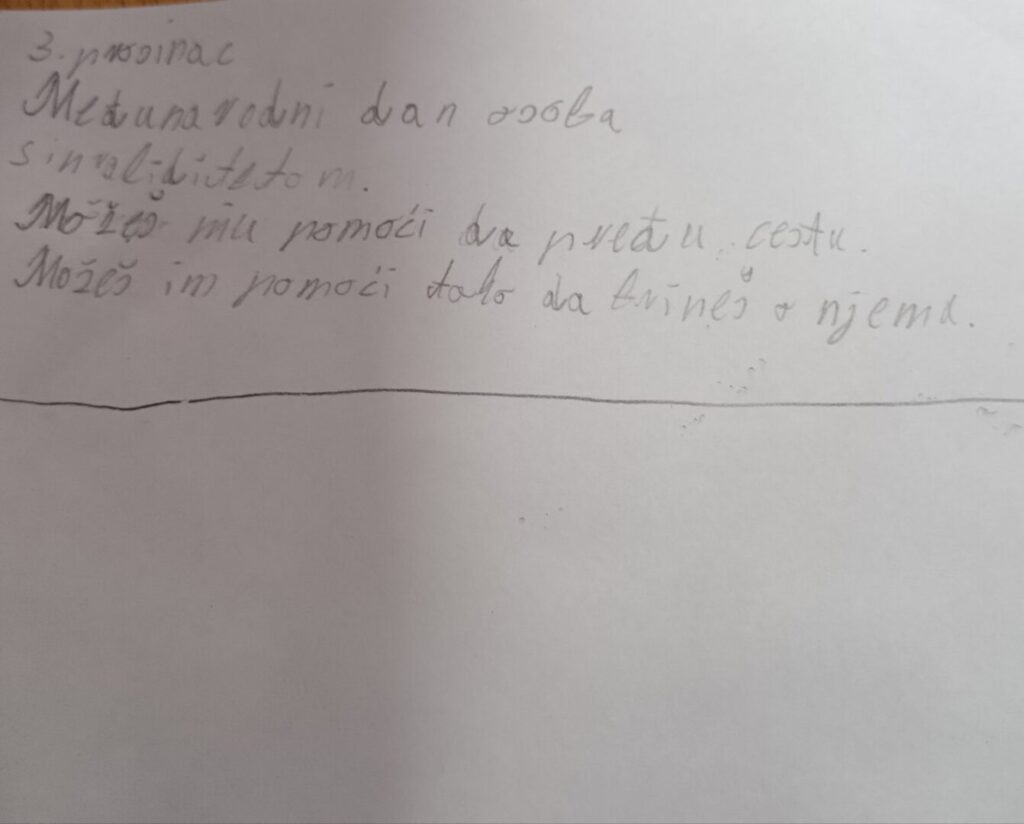 3. prosinac
Međunarodni dan osoba
s invaliditetom.
Možeš mu pomoći da pređu cestu.
Možeš im pomoći tako da brineš o njema.